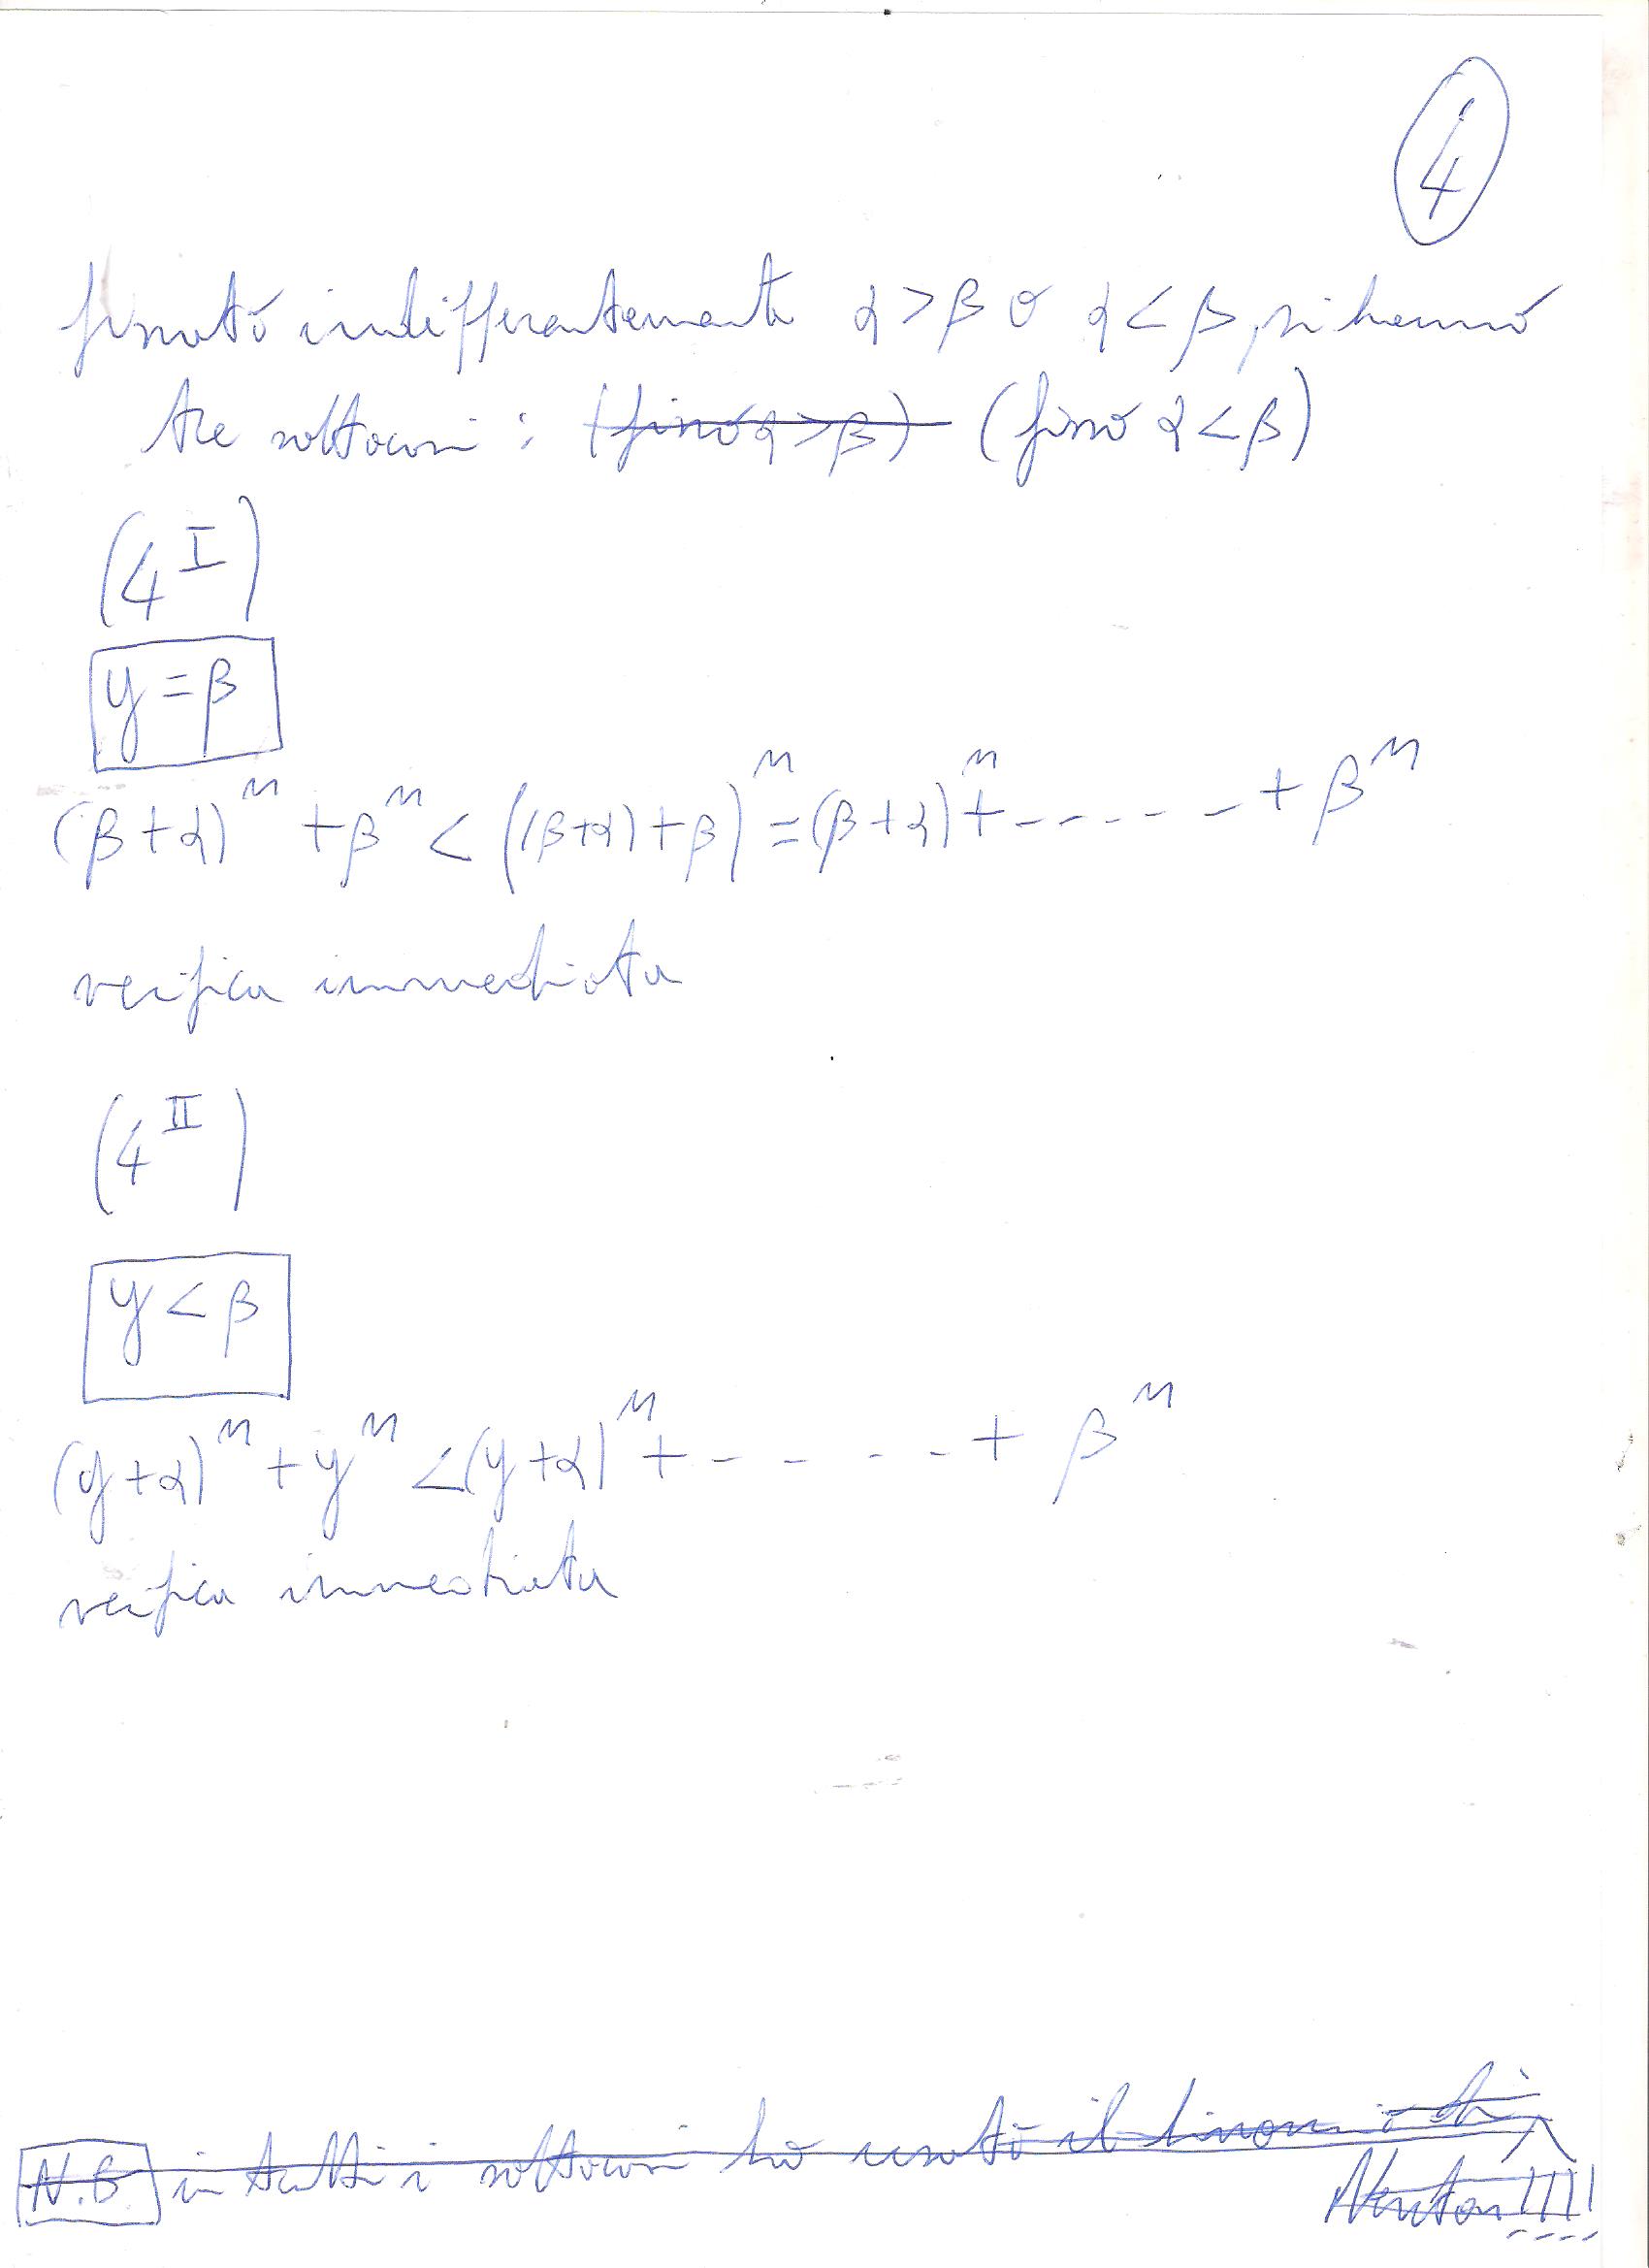 4
fissato indifferentemente α > β o α < β, si hanno
tre sottocasi: (fisso α > β) (fisso α < β)
(4^I)
y = β
(β + α)^n + β^n < ((β + α) + β)^n = (β + α)^n + ------ + β^n
verifica immediata
(4^II)
y < β
(y + α)^n + y^n < (y + α)^n + - - - - - + β^n
verifica immediata
N.B. in tutti i sottocasi ho usato il binomio di
Newton!!!!